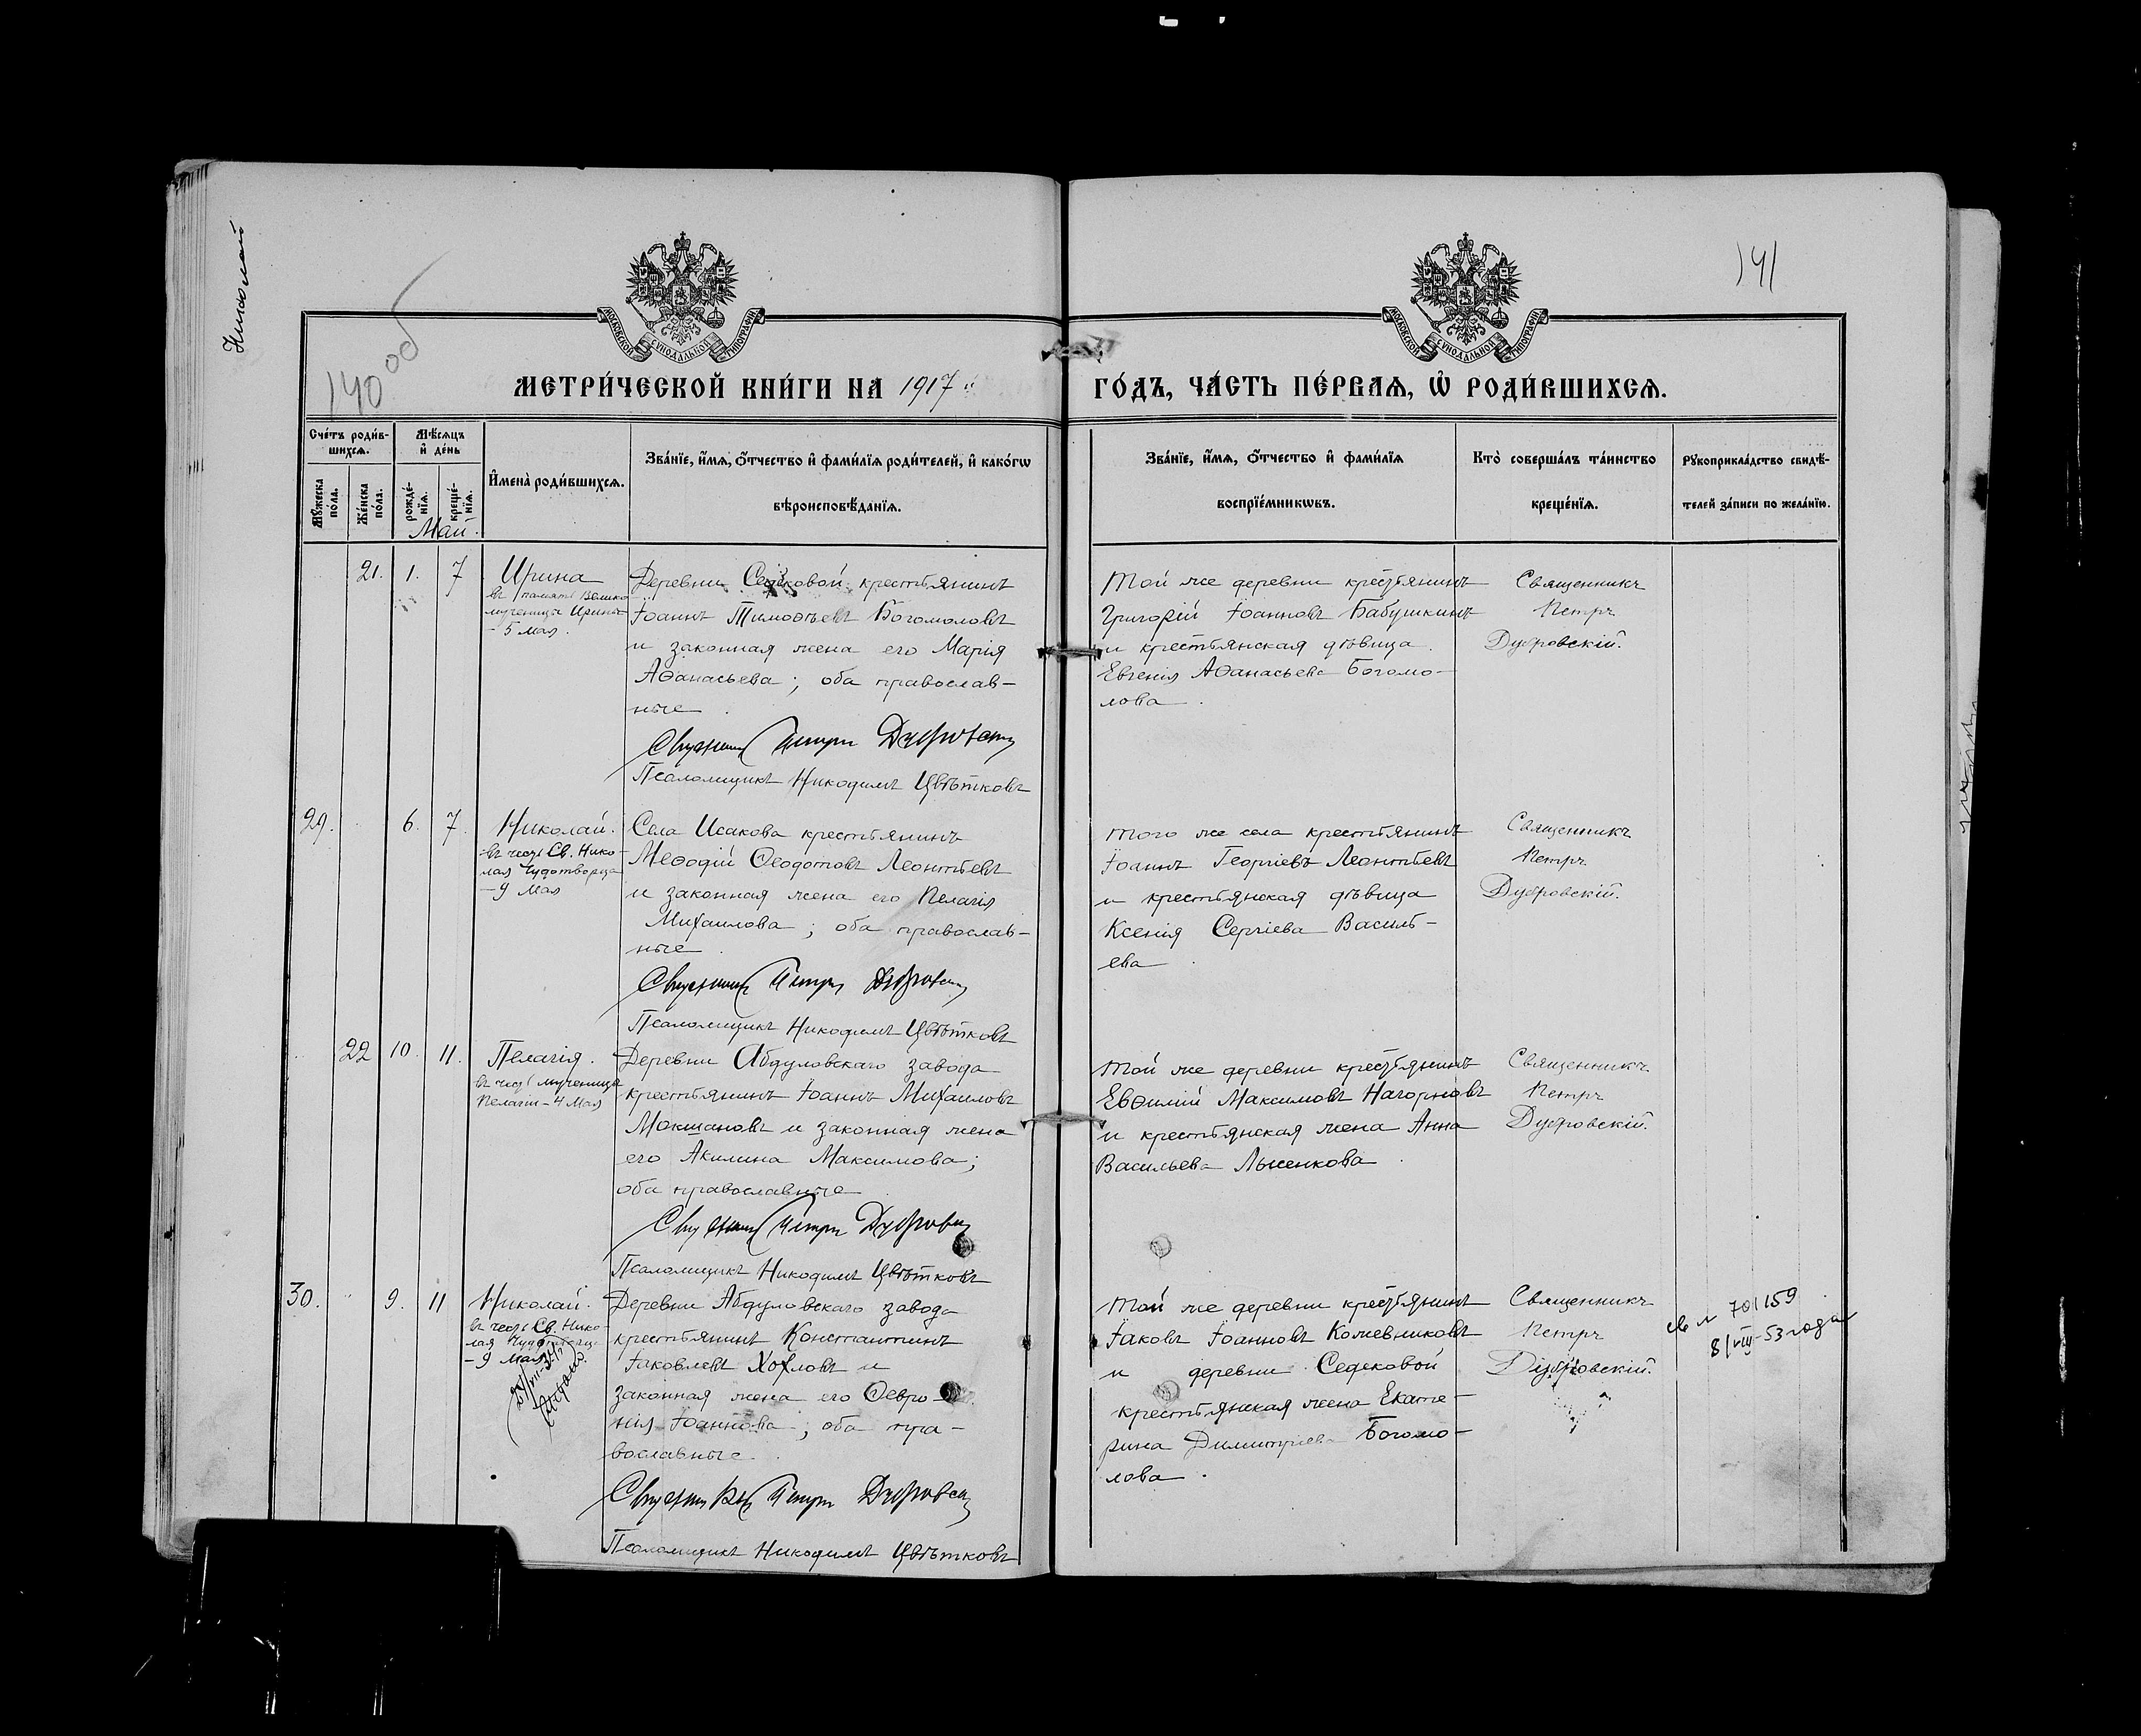 Николай
140 об
141
МОСКОВСКОЙ СѴНОДАЛЬНОЙ ТИПОГРАФІИ
МОСКОВСКОЙ СѴНОДАЛЬНОЙ ТИПОГРАФІИ
МЕТРИ́ЧЕСКОЙ КНИ́ГИ НА 1917 й ГО́ДЪ, ЧА́СТЬ ПЕ́РВАЯ, Ѡ҆ РОДИ́ВШИХСЯ.
Сче́тъ роди́в-
шихся.
Мѣ́сяцъ
и҆ де́нь
Мꙋ́жеска
по́ла.
Же́нска
по́ла.
рожде́-
нїя.
креще́-
нїя.
И҆мена̀ роди́вшихся.
Зва́нїе, и҆́мя, ѻ҆́тчество и҆ фами́лїя роди́телей, и҆ како́гѡ
вѣроисповѣ́данїя.
Зва́нїе, и҆́мя, ѻ҆́тчество и҆ фами́лїя
воспрїе́мникѡвъ.
Кто̀ соверша́лъ та́инство
креще́нїя.
Рꙋкоприкла́дство свидѣ́-
телей за́писи по жела́нїю.
Май.
21. 1. 7
Ирина
въ память Велико-
мученицы Ирины
- 5 мая.
Деревни Седяковой крестьянинъ
Іоаннъ Тимоѳѣевъ Богомоловъ
и законная жена его Марія
Аѳанасьева; оба православ-
ные.
Священникъ Петръ Дубровскій
Псаломщикъ Никодимъ Цвѣтковъ
Той же деревни крестьянинъ
Григорій Іоанновъ Бабушкинъ
и крестьянская дѣвица
Евгенія Аѳанасьева Богомо-
лова.
Священникъ
Петръ
Дубровскій.
29. 6. 7.
Николай.
въ честь Св. Нико-
лая Чудотворца
- 9 Мая
Села Исакова крестьянинъ
Меѳодій Ѳеодотовъ Леонтьевъ
и законная жена его Пелагія
Михаилова; оба православ-
ные.
Священникъ Петръ Дубровскій
Псаломщикъ Никодимъ Цвѣтковъ
того же села крестьянинъ
Іоаннъ Георгіевъ Леонтьевъ
и крестьянская дѣвица
Ксенія Сергіева Василь-
ева.
Священникъ
Петръ
Дубровскій.
22 10. 11.
Пелагія.
въ честь мученицы
Пелагіи - 4 Мая
Деревни Абдуловскаго завода
крестьянинъ Іоаннъ Михаиловъ
Мокшановъ и законная жена
его Акилина Максимова;
оба православные.
Священникъ Петръ Дубровскій
Псаломщикъ Никодимъ Цвѣтковъ
той же деревни крестьянинъ
Евѳимій Максимовъ Нагорновъ
и крестьянская жена Анна
Васильева Лысенкова.
Священникъ
Петръ
Дубровскій.
30. 9. 11
Николай.
въ честь Св. Нико-
лая Чудотворца
- 9 Мая.
Деревни Абдуловскаго завода
крестьянинъ Константинъ
Іаковлевъ Хохловъ и
законная жена его Ѳевро-
нія Іоаннова; оба пра-
вославные.
Священникъ Петръ Дубровскій
Псаломщикъ Никодимъ Цвѣтковъ
той же деревни крестьянинъ
Іаковъ Іоанновъ Кожевниковъ
и деревни Седяковой
крестьянская жена Екате-
рина Димитріева Богомо-
лова.
Священникъ
Петръ
Дубровскій.
701159
8/VIII-53 года